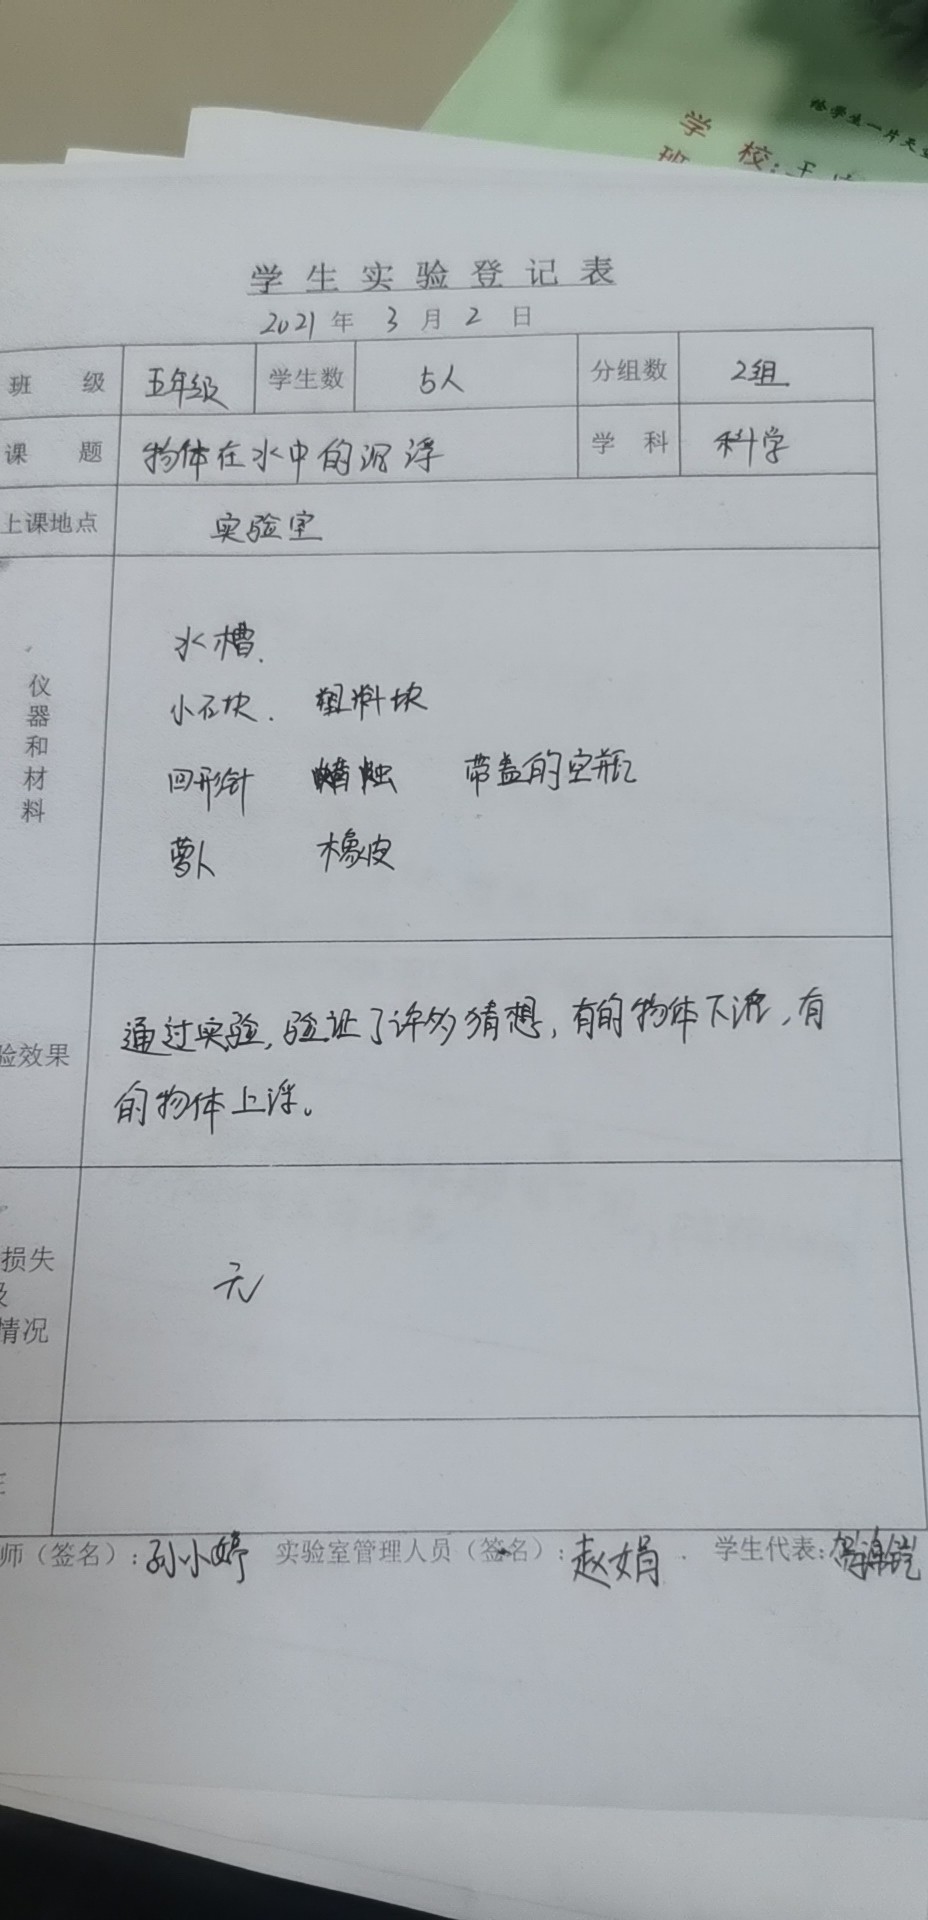 给学生一片天空
学 校:王
班
学生实验登记表
2021年 3月2日
班 级 五年级 学生数 5人 分组数 2组
课 题 物体在水中的沉浮 学 科 科学
上课地点 实验室
仪器和材料
水槽.
小石块. 塑料块
回形针 蜡烛 带盖的空瓶
萝卜 橡皮
验效果 通过实验,验证了许多猜想,有的物体下沉,有
的物体上浮。
损失
情况
无
师(签名):孙小婷 实验室管理人员(签名):赵娟. 学生代表: